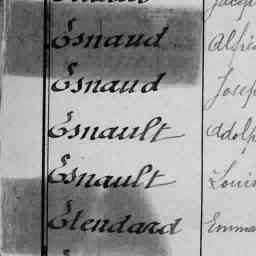 Esnaud Alfré
Esnaud Josep
Esnault Adolp
Esnault Louis
Etendard Emma